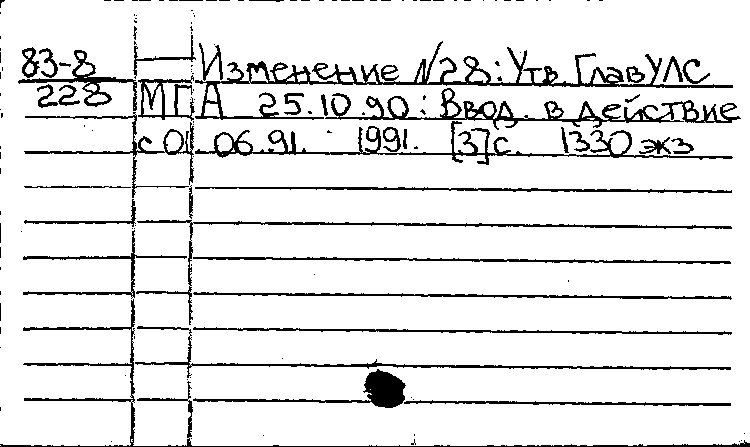 83-8 — Изменение №28: Утв. ГлавУЛС
228 МГА 25.10.90: Ввод. в действие
с 01.06.91. 1991. [3]с. 1330 экз